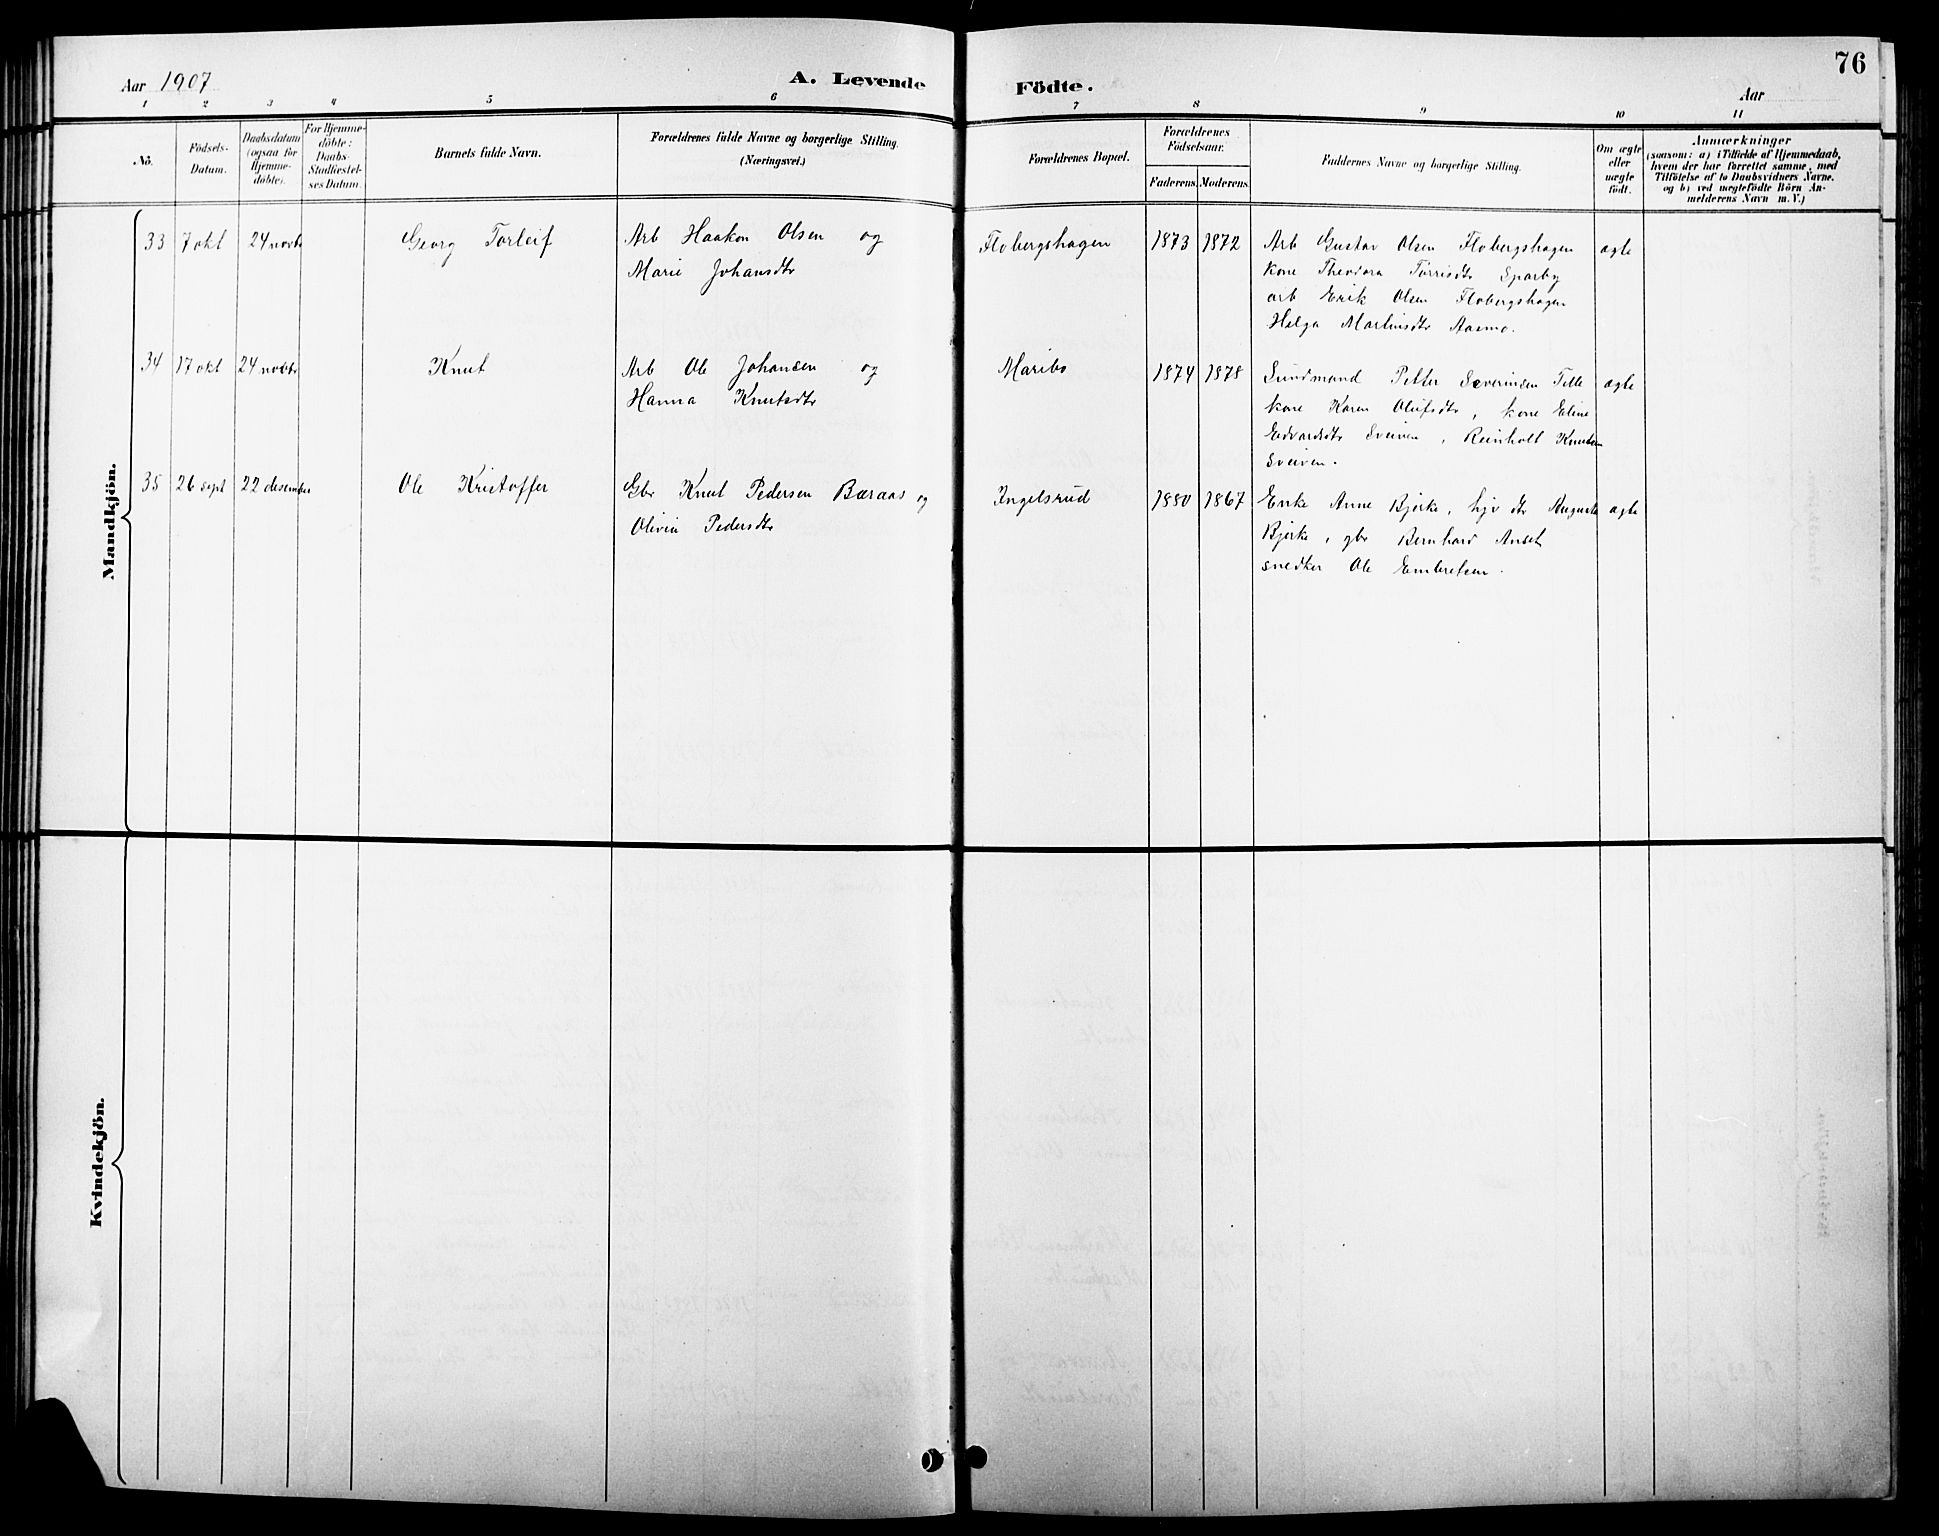 76
Aar 1907
A. Levende Födte.
Aar
1 2 3 4 5 6 7 8 9 10 11
Nô.
Födsels-
Datum.
Daabsdatum
(ogsaa for
Hjemme-
döbte).
For Hjemme-
döbte:
Daabs-
Stadfæstel-
ses Datum.
Barnets fulde Navn.
Forældrenes fulde Navne og borgerlige Stilling.
(Næringsvei.)
Forældrenes Bopæl.
Forældrenes
Födselsaar.
Faderens. Moderens.
Faddernes Navne og borgerlige Stilling.
Om ægte
eller
uægte
födt.
Anmærkninger
(saasom: a) i Tilfælde af Hjemmedaab,
hvem der har forrettet samme, med
Tilföielse af to Daabsvidners Navne.
og b) ved uægtefödte Börn An-
melderens Navn m. V.)
Mandkjön.
33 7 okt 24 novbr Georg Torleif Arb Haakon Olsen og
Marie Johansdtr
Flobergshagen 1873 1872 Arb Gustav Olsen Flobergshagen ægte
kone Theodora Torrisdtr Sparby
arb Erik Olsen Flobergshagen
Helga Martinsdtr Aasmo.
34 17 okt 24 novbr Knut Arb Ole Johansen og
Hanna Knutsdtr
Maribo 1874 1878 Sundmand Petter Severinsen Tille ægte
kone Karen Olufsdtr, kone Eline
Edvardsdtr Sveiven, Reinholt Knutsen
Sveiven.
35 26 sept 22 desember Ole Kristoffer Gbr Knut Pedersen Bæraas og
Olivia Pedersdtr
Ingelsrud 1880 1867 Enke Anne Bjørke, hjv dtr Auguste ægte
Bjørke, gbr Bernhard Anset
snedker Ole Embretsen.
Kvindekjön.